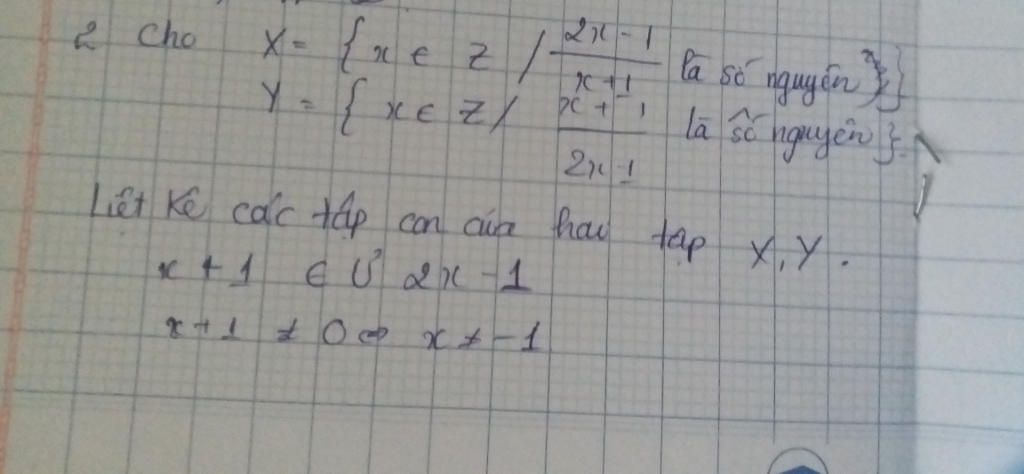 2 Cho X = { x ∈ Z / \frac{2x-1}{x+1} là số nguyên }}
Y = { x ∈ Z / \frac{x+1}{2x-1} là số nguyên }
Liệt kê các tập con của hai tập X, Y.
x + 1 ∈ Ư 2x - 1
x + 1 ≠ 0 ⇔ x ≠ -1